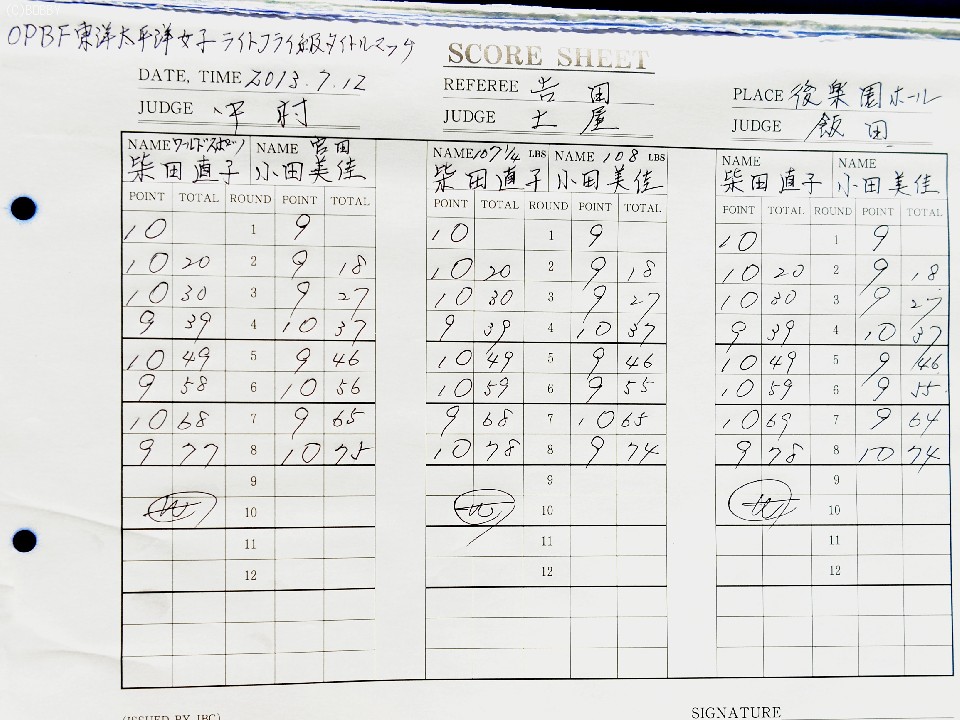 OPBF東洋太平洋女子ライトフライ級タイトルマッチ
SCORE SHEET
DATE, TIME 2013.7.12
REFEREE 吉田
PLACE 後楽園ホール
JUDGE 中村
JUDGE 土屋
JUDGE 飯田
NAME ワールドスポーツ NAME 宮田 NAME 107 1/4 LBS NAME 108 LBS NAME NAME
柴田直子 小田美佳 柴田直子 小田美佳 柴田直子 小田美佳
POINT TOTAL ROUND POINT TOTAL POINT TOTAL ROUND POINT TOTAL POINT TOTAL ROUND POINT TOTAL
10 1 9 10 1 9 10 1 9
10 20 2 9 18 10 20 2 9 18 10 20 2 9 18
10 30 3 9 27 10 30 3 9 27 10 30 3 9 27
9 39 4 10 37 9 39 4 10 37 9 39 4 10 37
10 49 5 9 46 10 49 5 9 46 10 49 5 9 46
9 58 6 10 56 10 59 6 9 55 10 59 6 9 55
10 68 7 9 65 9 68 7 10 65 10 69 7 9 64
9 77 8 10 75 10 78 8 9 74 9 78 8 10 74
9 9 9
W 10 W 10 W 10
11 11 11
12 12 12
(ISSUED BY JBC)
SIGNATURE